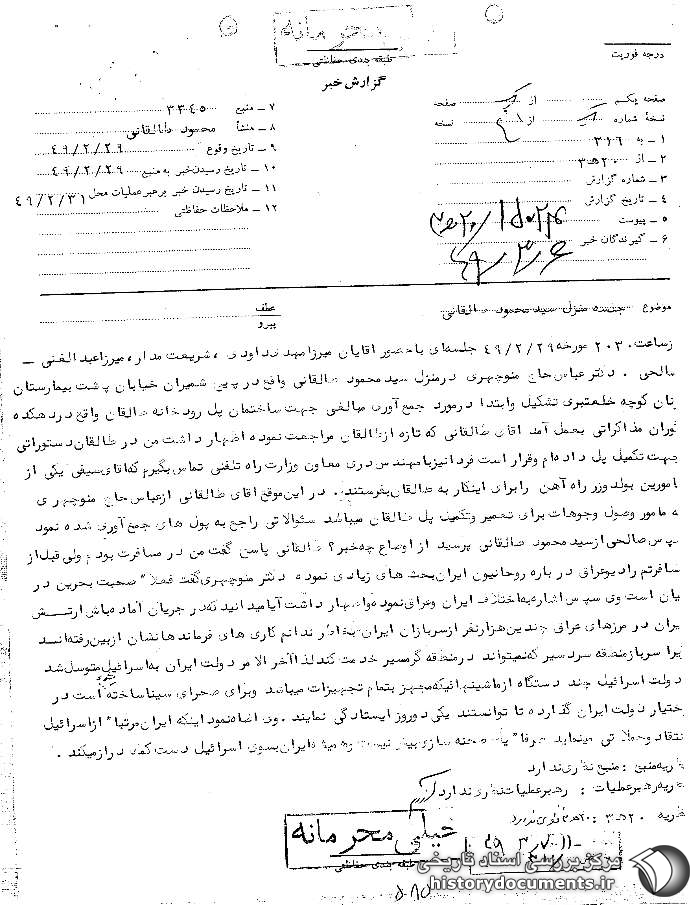 خیلی محرمانه
طبقه بندی حفاظتی
گزارش خبر
درجه فوریت
صفحه یکم از صفحه
نسخه شماره از نسخه
۱ ـ به ۳۱۶
۲ ـ از ۲۰ ه‍ ۳
۳ ـ شماره گزارش
۴ ـ تاریخ گزارش
۵ ـ پیوست
۶ ـ گیرندگان خبر
۴۹/۳/۶
۷ ـ منبع ۳۳۴۵
۸ ـ منشأ محمود طالقانی
۹ ـ تاریخ وقوع ۴۹/۲/۲۹
۱۰ ـ تاریخ رسیدن خبر به منبع ۴۹/۲/۲۹
۱۱ ـ تاریخ رسیدن خبر به رهبر عملیات محل ۴۹/۲/۳۱
۱۲ ـ ملاحظات حفاظتی
موضوع جلسه منزل سید محمود طالقانی
عطف
پیرو
از ساعت ۲۰۳۰ مورخه ۴۹/۲/۲۹ جلسه‌ای با حضور اقایان میرزا مهدی داودی ، شریعت مدار ، میرزا عبدالغنی ـ
صالحی . دکتر عباس حاج منوچهری در منزل سید محمود طالقانی واقع در پیچ شمیران خیابان پشت بیمارستان
زنان کوچه تشکیل و ابتدا در مورد جمع آوری مبالغی جهت ساختمان پل رودخانه طالقان واقع در دهکده
مذاکراتی بعمل آمد اقای طالقانی که تازه از طالقان مراجعت نموده اظهار داشت من در طالقان دستوراتی
جهت تکمیل پل داده‌ام و قرار است فردا نیز با مهندس دری معاون وزارت راه تلفنی تماس بگیرم که اقای سیفی یکی از
مامورین پولدوزر راه آهن را برای اینکار به طالقان بفرستند . در این موقع اقای طالقانی از عباس حاج منوچهری
که مامور وصول وجوهات برای تعمیر و تکمیل پل طالقان میباشد سئوالاتی راجع به پول های جمع آوری شده نمود
سپس صالحی از سید محمود طالقانی پرسید از اوضاع چه خبر؟ طالقانی پاسخ گفت من در مسافرت بودم ولی قبل از
مسافرتم رادیو عراق در باره روحانیون ایران بحث های زیادی نموده دکتر منوچهری گفت فعلا" صحبت بحرین در
میان است وی سپس اشاره به اختلاف ایران و عراق نموده و اظهار داشت آیا میدانید که در جریان آماده باش ارتـــش
ایران در مرزهای عراق چندین هزار نفر از سربازان ایران بخاطر ندانم کاری های فرماندهانشان از بین رفته‌اند
زیرا سرباز منطقه سردسیر که نمیتواند در منطقه گرمسیر خدمت کند لذا آخر الامر دولت ایران به اسرائیل متوسل شد
و دولت اسرائیل چند دستگاه از ماشینهائیکه مجهز بتمام تجهیزات میباشد و برای صحرای سینا ساخته است در
اختیار دولت ایران گذارده تا توانستند یکی دو روز ایستادگی نمایند . وی اضافه نمود اینکه ایران مرتبا" از اسرائیل
انتقاد و حملاتی مینماید صرفا" یک صحنه سازی بیش نیست و همیشه ایران بسوی اسرائیل دست کمک دراز میکند .
نظریه منبع : منبع نظری ندارد
نظریه رهبر عملیات : رهبر عملیات نظری ندارد
نظریه ۲۰ ه‍ ۳ :
خیلی محرمانه
طبقه بندی حفاظتی
مرکز بررسی اسناد تاریخی
historydocuments.ir